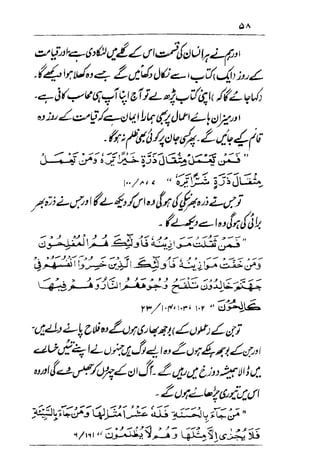 ۵۸
اور ہم نے ہر انسان کی قسمت اس کے گلے میں لٹکا دی ہے اور قیامت
کے روز (ایک) کتاب اسے نکال دکھائیں گے جسے وہ کھلا ہوا دیکھے گا۔
(کہا جائے گا کہ) اپنی کتاب پڑھ لے تو آج اپنا آپ ہی محاسب کافی ہے۔
اور میزان ہائے اعمال پر بھی ہمارا ایمان ہے کہ قیامت کے روز وہ
قائم کیے جائیں گے۔ پھر کسی جان پر کوئی بھی ظلم نہ ہوگا۔
"فَمَن يَعْمَلْ مِثْقَالَ ذَرَّةٍ خَيْرًا يَرَهُ وَمَن يَعْمَلْ
مِثْقَالَ ذَرَّةٍ شَرًّا يَرَهُ" ۷، ۸/۱۰۰
تو جس نے ذرہ بھر نیکی کی ہوگی وہ اس کو دیکھ لے گا اور جس نے ذرہ بھر
برائی کی ہوگی وہ اسے دیکھ لے گا۔
"فَمَن ثَقُلَتْ مَوَازِينُهُ فَأُولَٰئِكَ هُمُ الْمُفْلِحُونَ
وَمَنْ خَفَّتْ مَوَازِينُهُ فَأُولَٰئِكَ الَّذِينَ خَسِرُوا أَنفُسَهُمْ فِي
جَهَنَّمَ خَالِدُونَ تَلْفَحُ وُجُوهَهُمُ النَّارُ وَهُمْ فِيهَا
كَالِحُونَ" ۱۰۲، ۱۰۳، ۱۰۴/۲۳
تو جن کے (عملوں کے) بوجھ بھاری ہوں گے وہ فلاح پانے والے ہیں۔
اور جن کے بوجھ ہلکے ہوں گے وہ ایسے لوگ ہیں جنہوں نے اپنے تئیں خسارے
میں ڈالا ہمیشہ دوزخ میں رہیں گے۔ آگ ان کے چہروں کو جھلس دے گی اور وہ
اس میں تیوری چڑھائے ہوں گے۔
"مَن جَاءَ بِالْحَسَنَةِ فَلَهُ عَشْرُ أَمْثَالِهَا وَمَن جَاءَ بِالسَّيِّئَةِ
فَلَا يُجْزَىٰ إِلَّا مِثْلَهَا وَهُمْ لَا يُظْلَمُونَ" ۱۶۱/۶